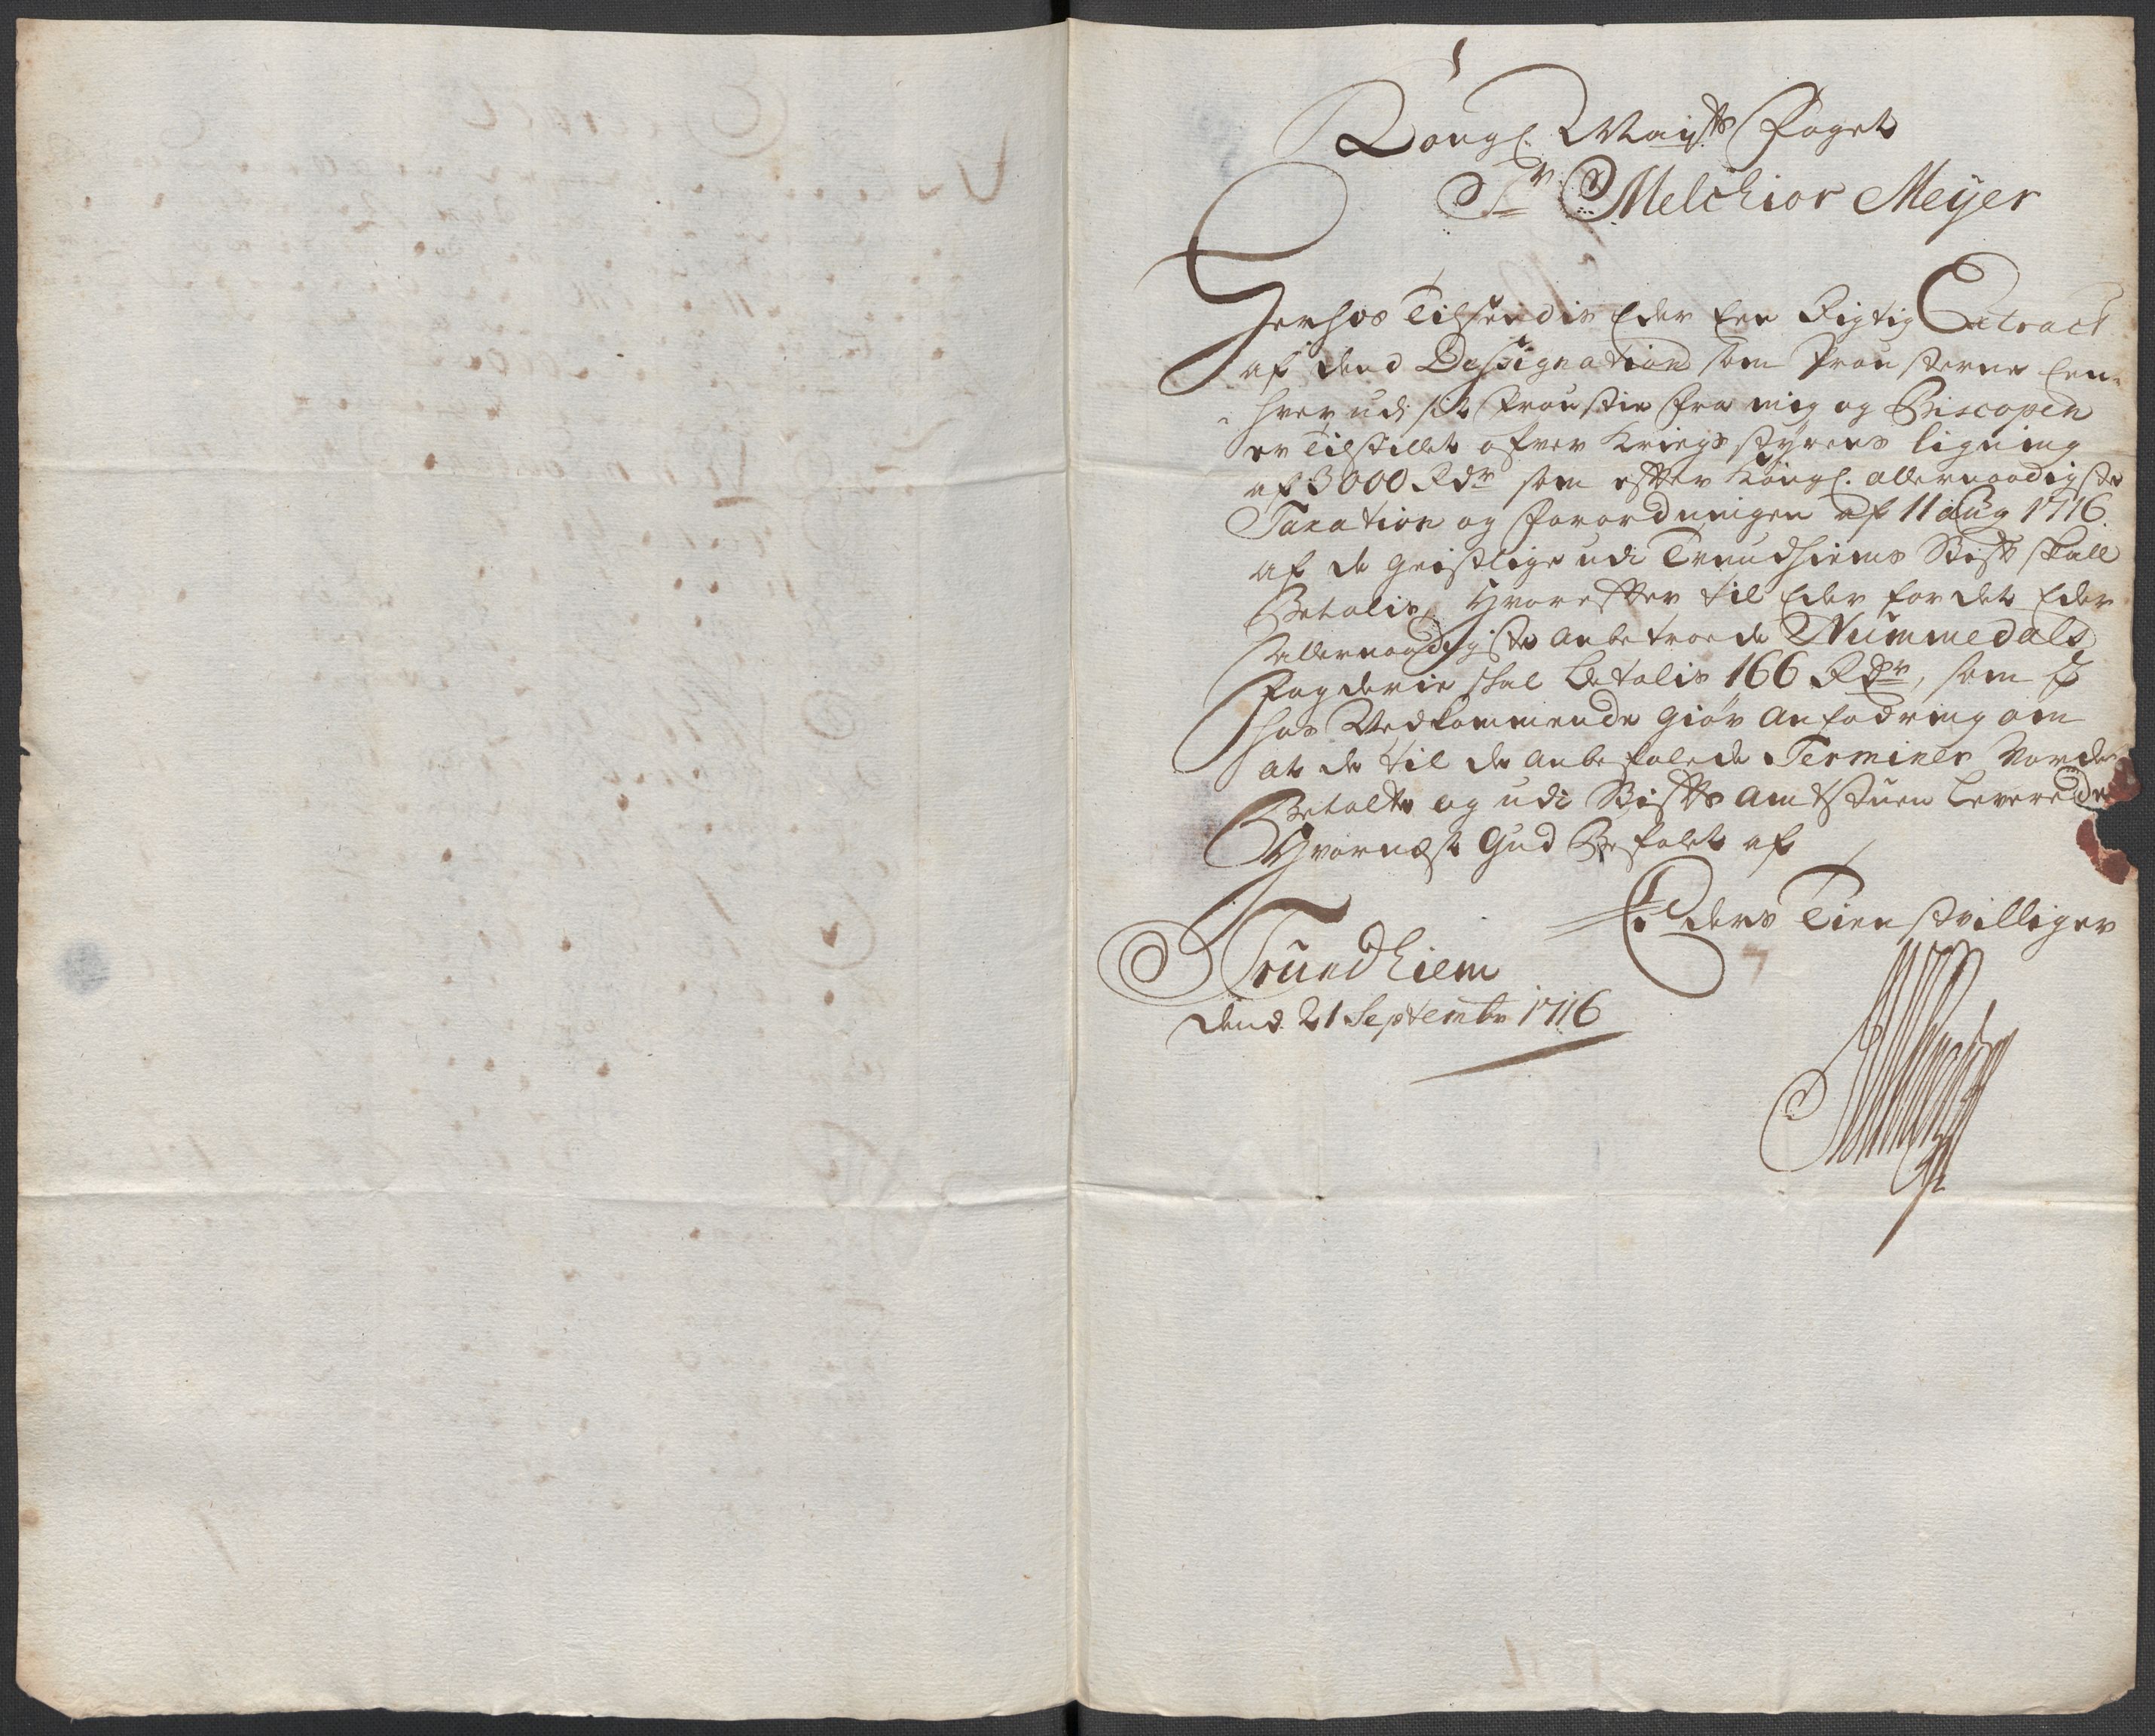 Kongl. Mayts Foget
Sr Melchior Meyer
Herhos Tilsendis Eder Een Rigtig Extract
af dend Designation som Prousterne Een-
hver udi sit Proustie fra mig og Biscopen
er Tilstillet ofver Kriigs styrens ligning
af 3000 Rdr som efter Kongl. allernaadigste
Taxation og Forordningen af 11 Aug 1716.
af de geistlige udi Trundhiems Stift skall
Betalis, Hvorefter til Eder for det Eder
allernaadigste anbetroede Nummedals
Fogderie skal betalis 166 Rdr, som I
hos Vedkommende giør anfodring om
at de til de anbefalede Terminer vorde
Betalte og udi Stifts Amtstuen leverede
Hvornæst Gud Befalet af
Eders Tienstvilliger
Trundhiem
dend 21 Septembr 1716